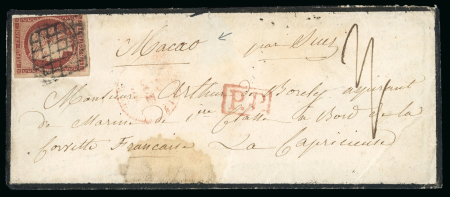 Macao par Suez
P.P.
Monsieur Arthur de Boissy aspirant
de Marine de 1ere Classe à Bord de la
Corvette Francaise La Capricieuse